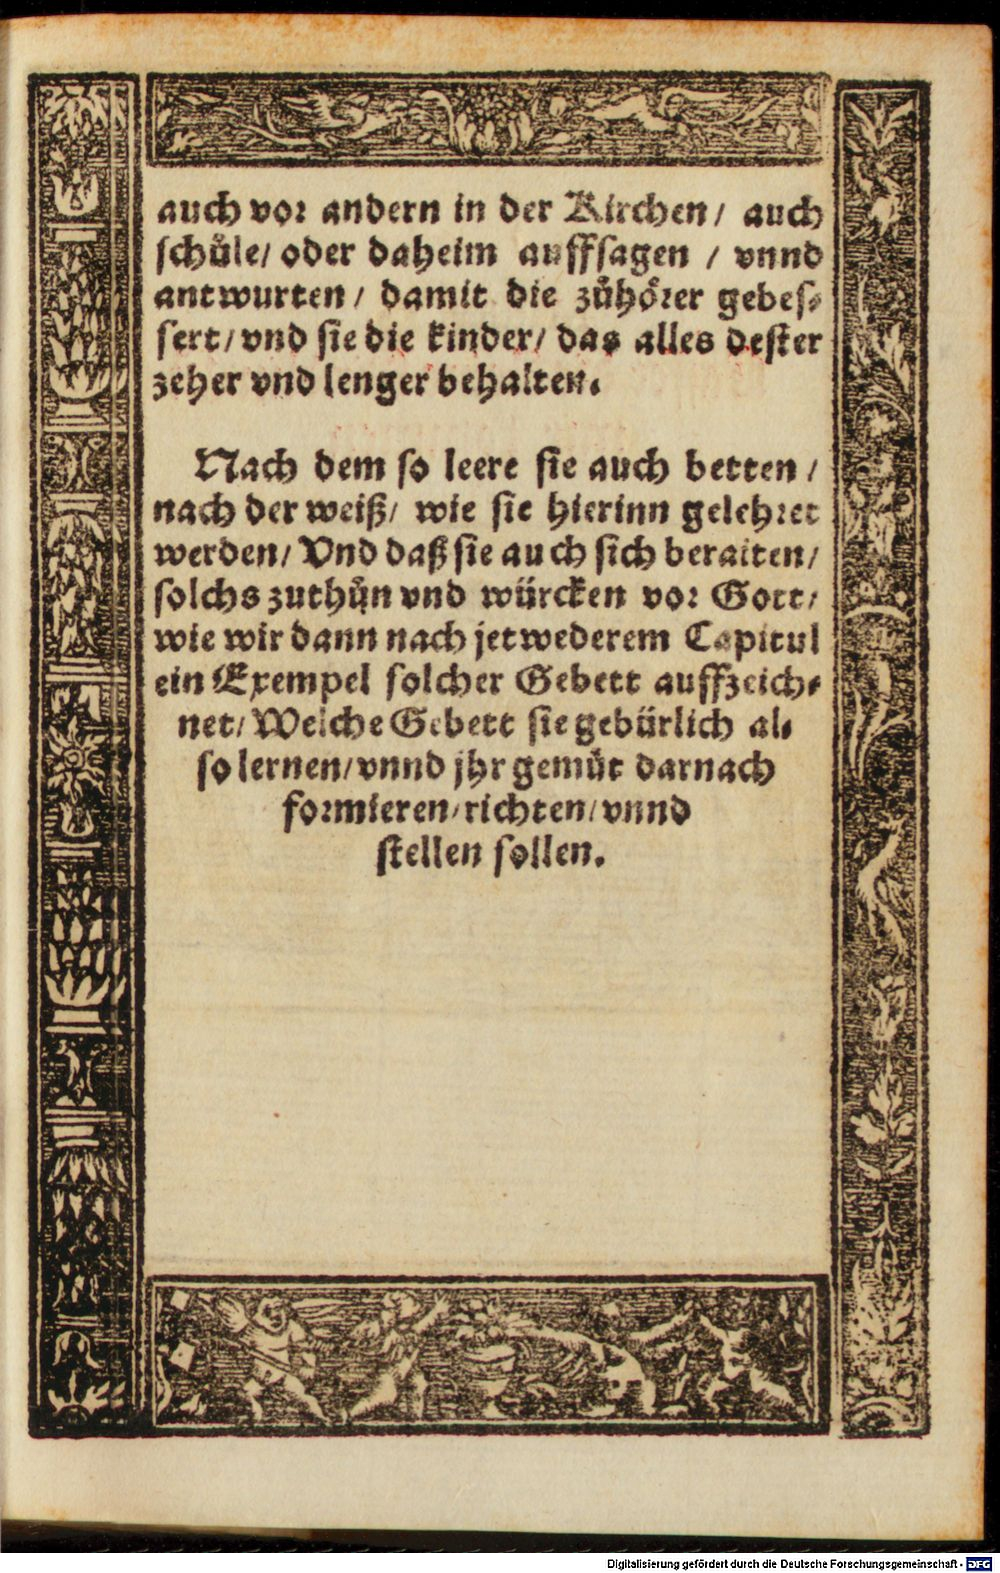 auch vor andern in der Kirchen/ auch
schůle/ oder daheim auffsagen / vnnd
antwurten / damit die zůhörer gebes⸗
sert/ vnd sie die kinder/ das alles dester
zeher vnd lenger behalten.
Nach dem so leere sie auch betten /
nach der weiß/ wie sie hierinn gelehret
werden/ Vnd daß sie auch sich beraiten/
solchs zuthůn vnd würcken vor Gott/
wie wir dann nach jetwederem Capitul
ein Exempel solcher Gebett auffzeich⸗
net/ Welche Gebett sie gebürlich al⸗
so lernen/ vnnd jhr gemüt darnach
formieren/ richten/ vnnd
stellen sollen.
Digitalisierung gefördert durch die Deutsche Forschungsgemeinschaft - DFG